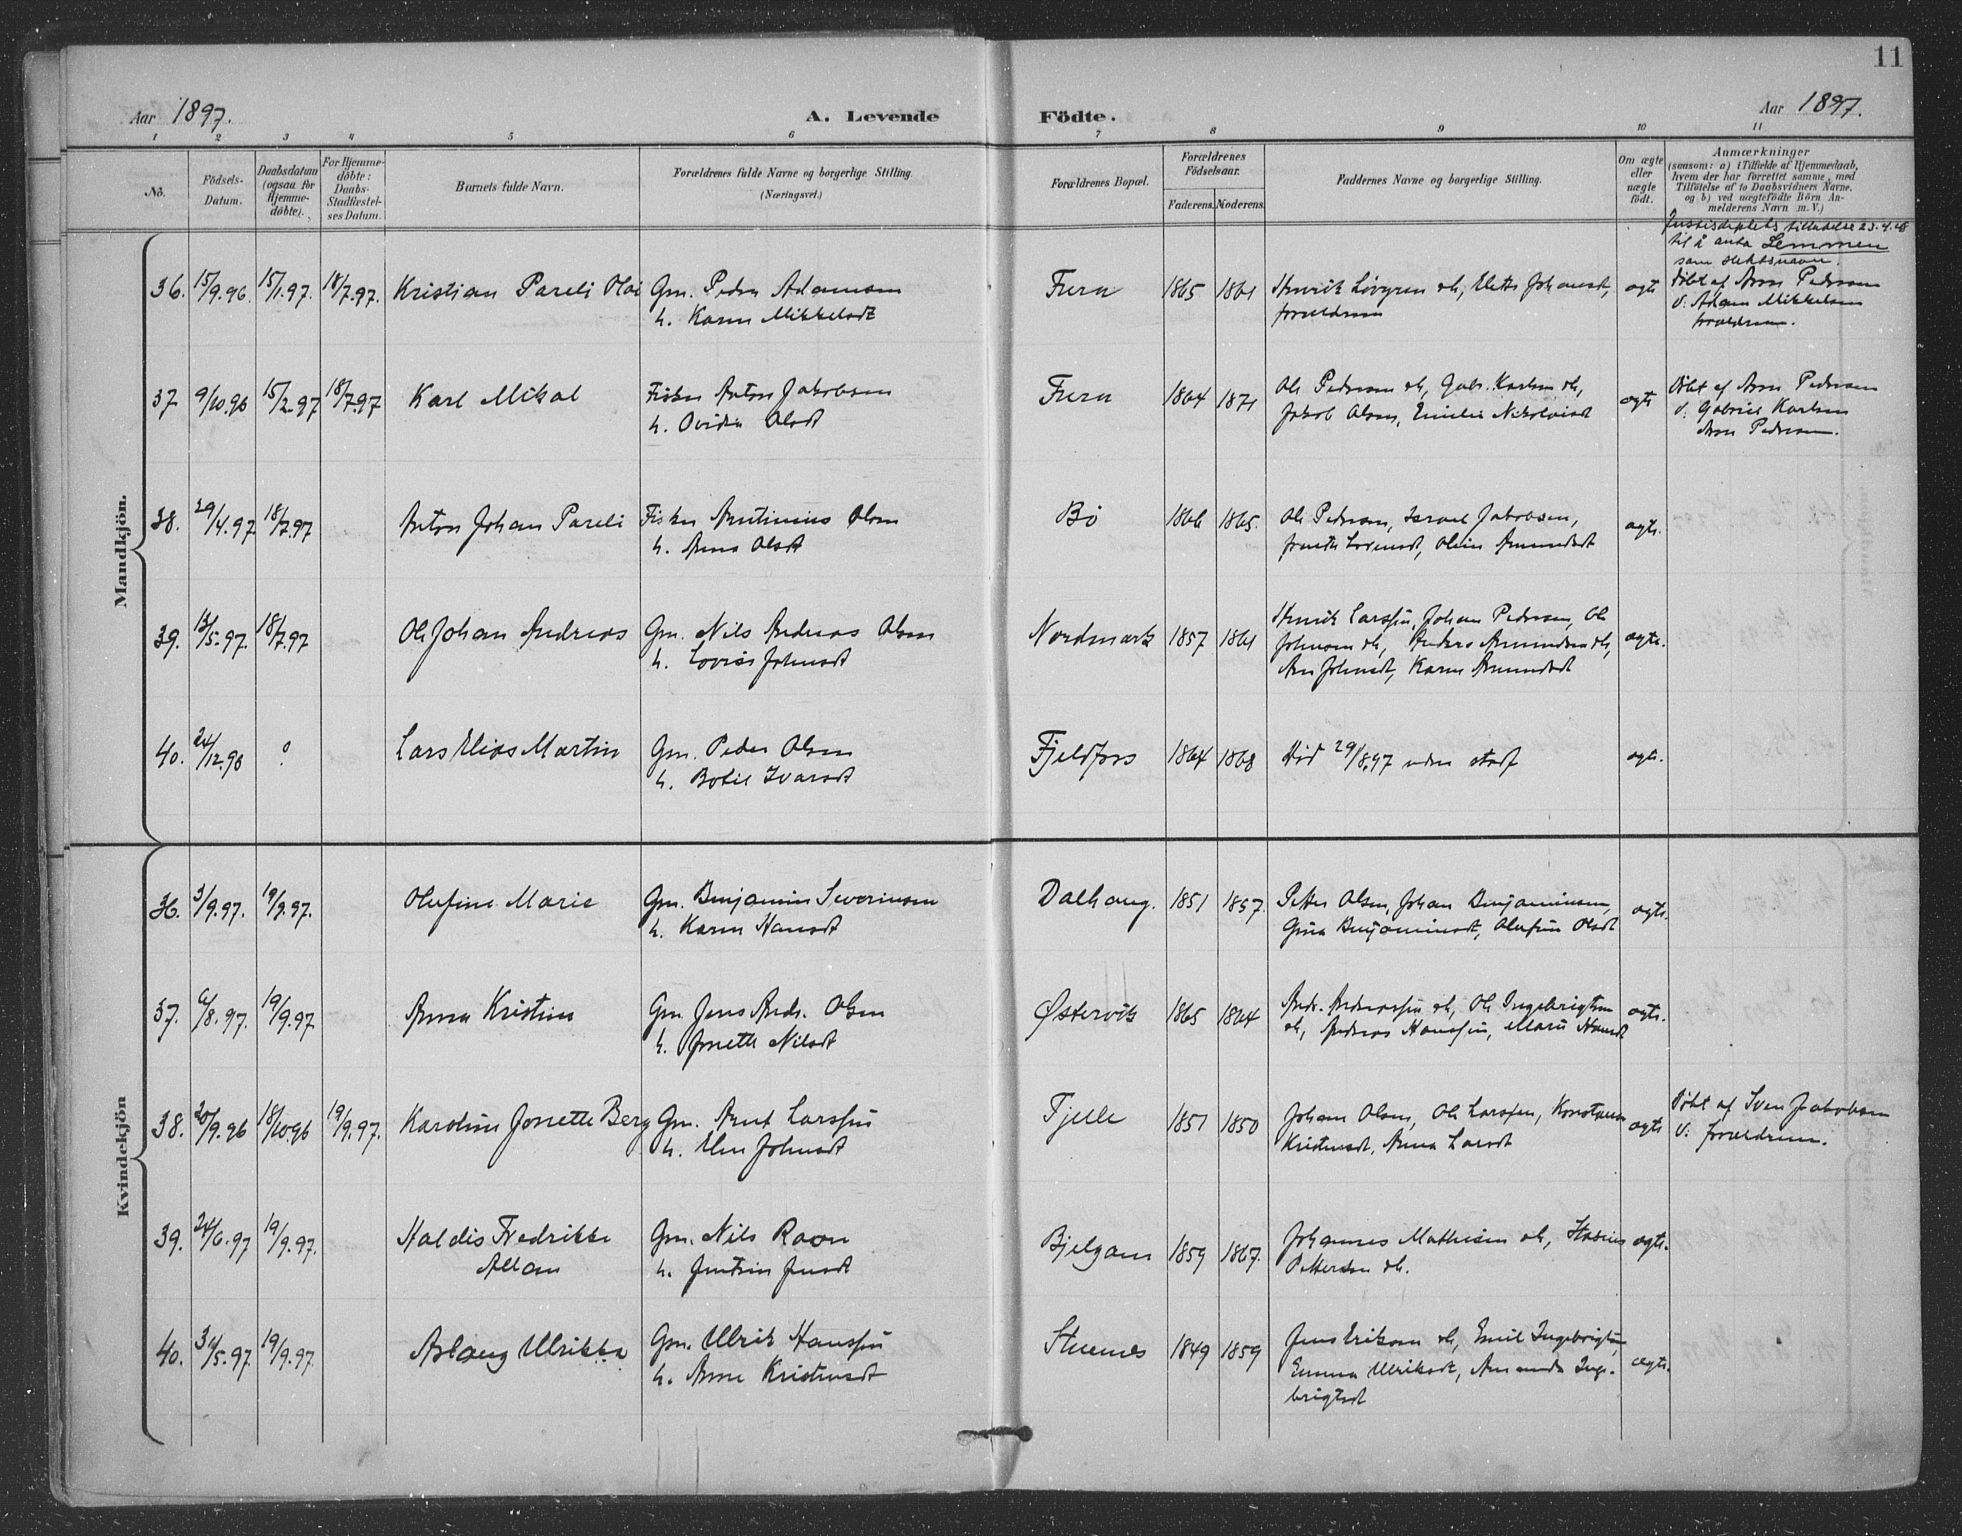 11
Aar 1897.
A. Levende Födte.
Aar 1897.
1 2 3 4 5 6 7 8 9 10 11
No.
Födsels-
Datum.
Daabsdatum
(ogsaa for
Hjemme-
döbte).
For Hjemme-
döbte:
Daabs-
Stadfæstel-
ses Datum.
Barnets fulde Navn.
Forældrenes fulde Navne og borgerlige Stilling.
(Næringsvei.)
Forældrenes Bopæl.
Forældrenes
Födselsaar.
Faderens. Moderens.
Faddernes Navne og borgerlige Stilling.
Om ægte
eller
uægte
födt.
Anmærkninger
(saasom: a) i Tilfælde af Hjemmedaab,
hvem der har forrettet samme, med
Tilföielse af to Daabsvidners Navne,
og b) ved uægtefödte Börn An-
melderens Navn m. V.)
Mandkjön.
Justisdeptets tilladelse 23.4.48
til å anta Lemmen
som slektsnavn.
36. 15/9.96. 15/1.97. 18/7.97. Kristian Pareli Olai Gm. Peder Adamsen Furu 1865 1861 Henrik Løvgren og h., Mette Johansdt, ægte Døbt af Arne Pedersen
h. Karen Mikkelsdt forældrene v. Adam Mikkelsen
forældrene.
37. 9/10.96 15/2.97 18/7.97 Karl Mikal Fisker Anton Jakobsen Furu 1864 1871 Ole Pedersen og h., Gabr. Karlsen og h., ægte Døbt af Arne Pedersen
h. Ovidia Olsdt Jakob Olsen, Emilie Nikolaisdt v. Gabriel Karlsen
Arne Pedersen.
38. 29/4.97. 18/7.97 Anton Johan Pareli Fisker Arntinius Olsen Bø 1866 1865. Ole Pedersen, Israel Jakobsen, ægte.
h. Anna Olsdt Olsdt
39. 13/5.97. 18/7.97 Ole Johan Andreas Gm. Nils Andreas Olsen Nordmark 1857 1861 Henrik Larssen, Johan Pedersen, Ole ægte.
h. Lovise Johnsdt Johnsen og h., Anders Amundsen og h.,
Ane Johnsdt, Karen Amundsdt
40. 24/12.96 ? Lars Elias Martin Gm. Peder Olsen Fjeldfors 1864 1868 Død 29/8.97 uden stadf ægte.
h. Botil Ivarsdt
Kvindekjön
36. 3/9.97. 19/9.97. Olufine Marie Gm. Benjamin Severinsen Dalhaug. 1851 1857. Petter Olsen, Johan Benjaminsen, ægte.
h. Karen Hansdt Gina Benjaminsdt, Olufine Olsdt
37. 6/8.97. 19/9.97. Anna Kristine Gm. Jens Andr. Olsen Østervik 1865 1864 Andr. Andreassen og h., Ole Ingebrigtsen ægte.
h. Jonette Nilsdt og h., Andreas Hanssen, Marie Hansdt
38. 20/9.96 18/10.96 19/9.97. Karoline Jonette Berg Gm. Arnt Larssen Fjelle 1851 1850 Johan Olsen, Ole Larssen, Konstanse ægte Døbt af Sven Jakobsen
h. Elen Johnsdt Kristensdt, Anna Larsdt v. forældrene.
39. 24/6.97 19/9.97. Haldis Fredrikke Gm. Nils Raven Bjelgam 1859 1867. Johannes Mathisen og h., Hasius ægte.
Allan h. Jentine Jensdt Pettersen og h.
40. 31/5.97 19/9.97. Aslaug Ulrikka Gm. Ulrik Hanssen Stuenes 1849 1859 Jens Eriksen og h., Emil Ingebrigtsen, ægte.
h. Anne Kristensdt Emma Ulriksdt, Amanda Inge-
brigtsdt